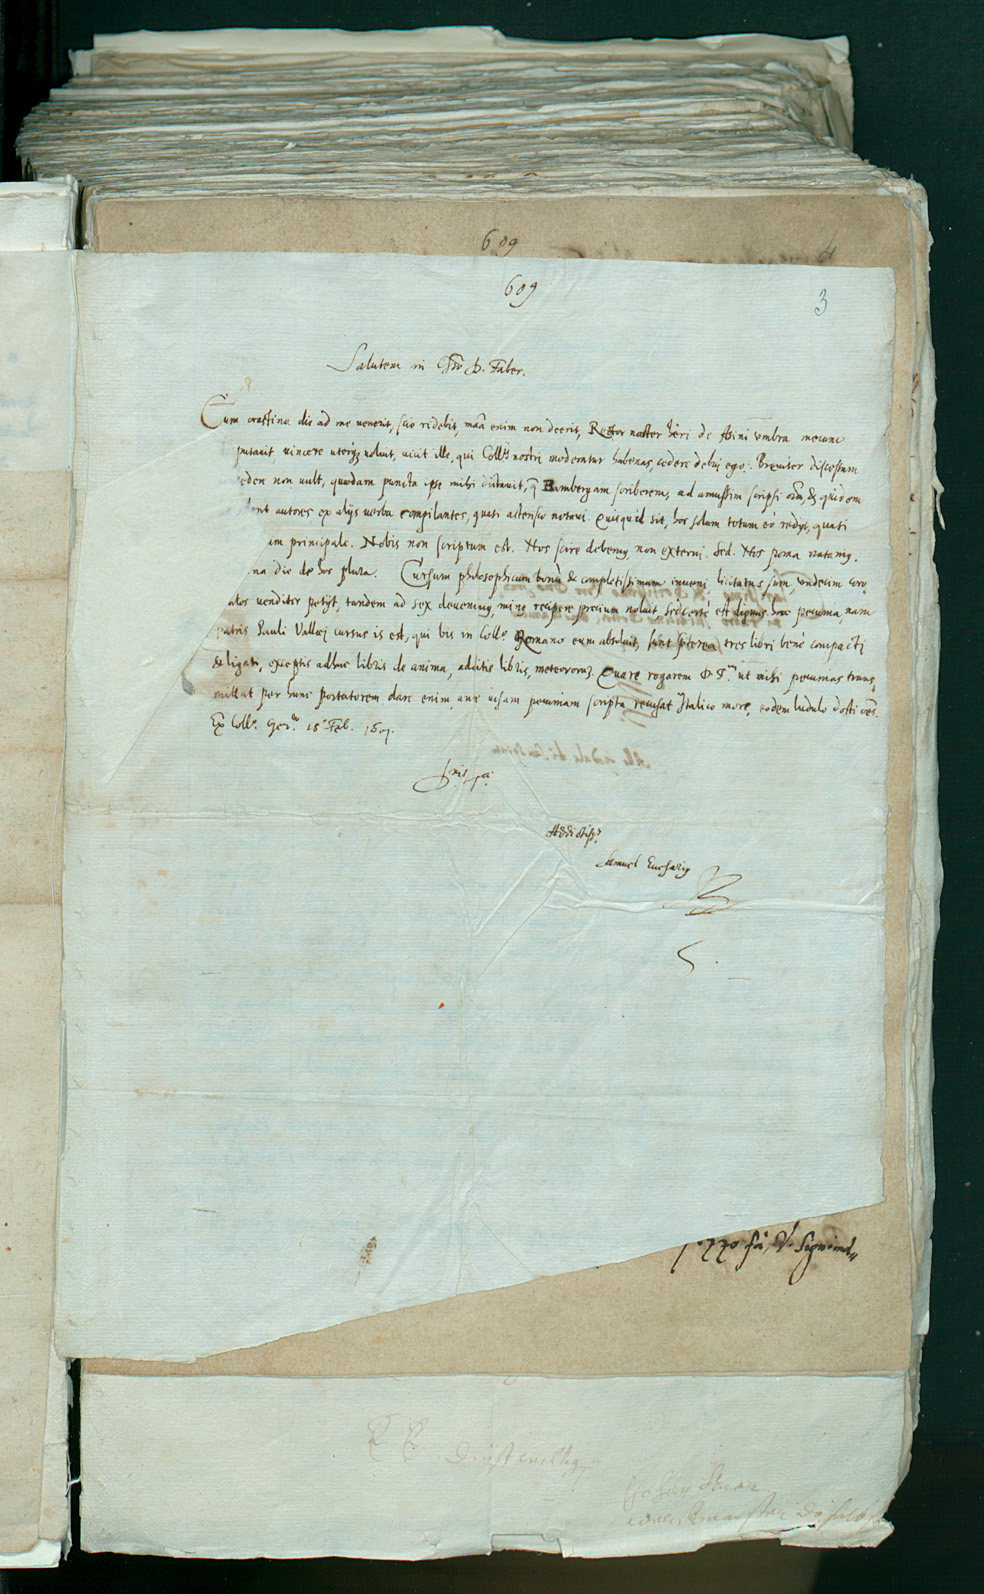 609
4
609
3
Salutem in Chro D. Faber.
Cum crastina die ad me venerit, scio ridebit, maã enim non deerit, Rector noster heri de Asini umbra mecum
putauit, vincere uterq; voluit, vicit ille, qui Collij nostri moderatur habenas, cedere debui ego. Breviter discessum
eden non vult, quædam puncta ipse mihi dictauit, q Bambergam scriberem, ad amussim scripsi
autores ex alijs verba compilantes, quasi asterisco notavi. Quicquid sit, hoc solum totum eò redijt, quasi
am principale. Nobis non scriptum est. Nos scire debemus non externi. Sed. Nos poma natamus.
na die de hoc plura. Cursum philosophicum bonũ & completissimum inveni, licitatus sum, undecim
atos venditor petijt, tandem ad sex devenimus, minus recipere precium noluit, sed certè est dignus hac pecunia, nam
patris Pauli Vallæi cursus is est, qui bis in Collo Romano eum absoluit, sunt præterea tres libri benè compacti
& ligati, exceptis adhuc libris de anima, additis libris, meteororum. Quare rogarem D. T. ut mihi pecunias trans,
mittat per hunc portatorem dare enim ante visam pecuniam scripta recusat Italico more, eodem ludulo docti
Ex Collo. Gero. 15 Feb. 1601.
Addictiss.
Samuel Eucharius